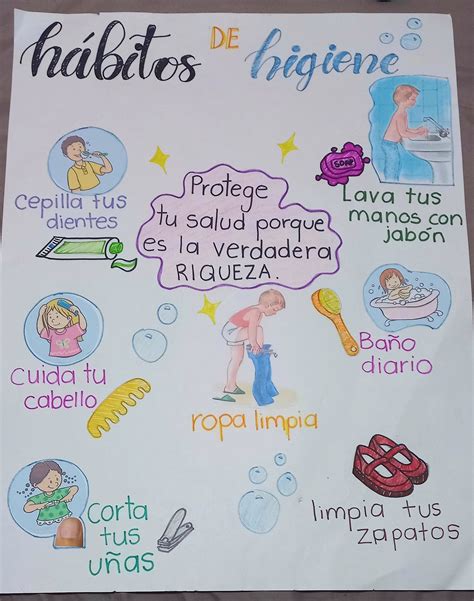 hábitos DE higiene
Cepilla tus
dientes
Protege
tu salud porque
es la verdadera
RIQUEZA.
SOAP
Lava tus
manos con
jabón
Cuida tu
cabello
ropa limpia
Baño
diario
Corta
tus
uñas
limpia tus
zapatos